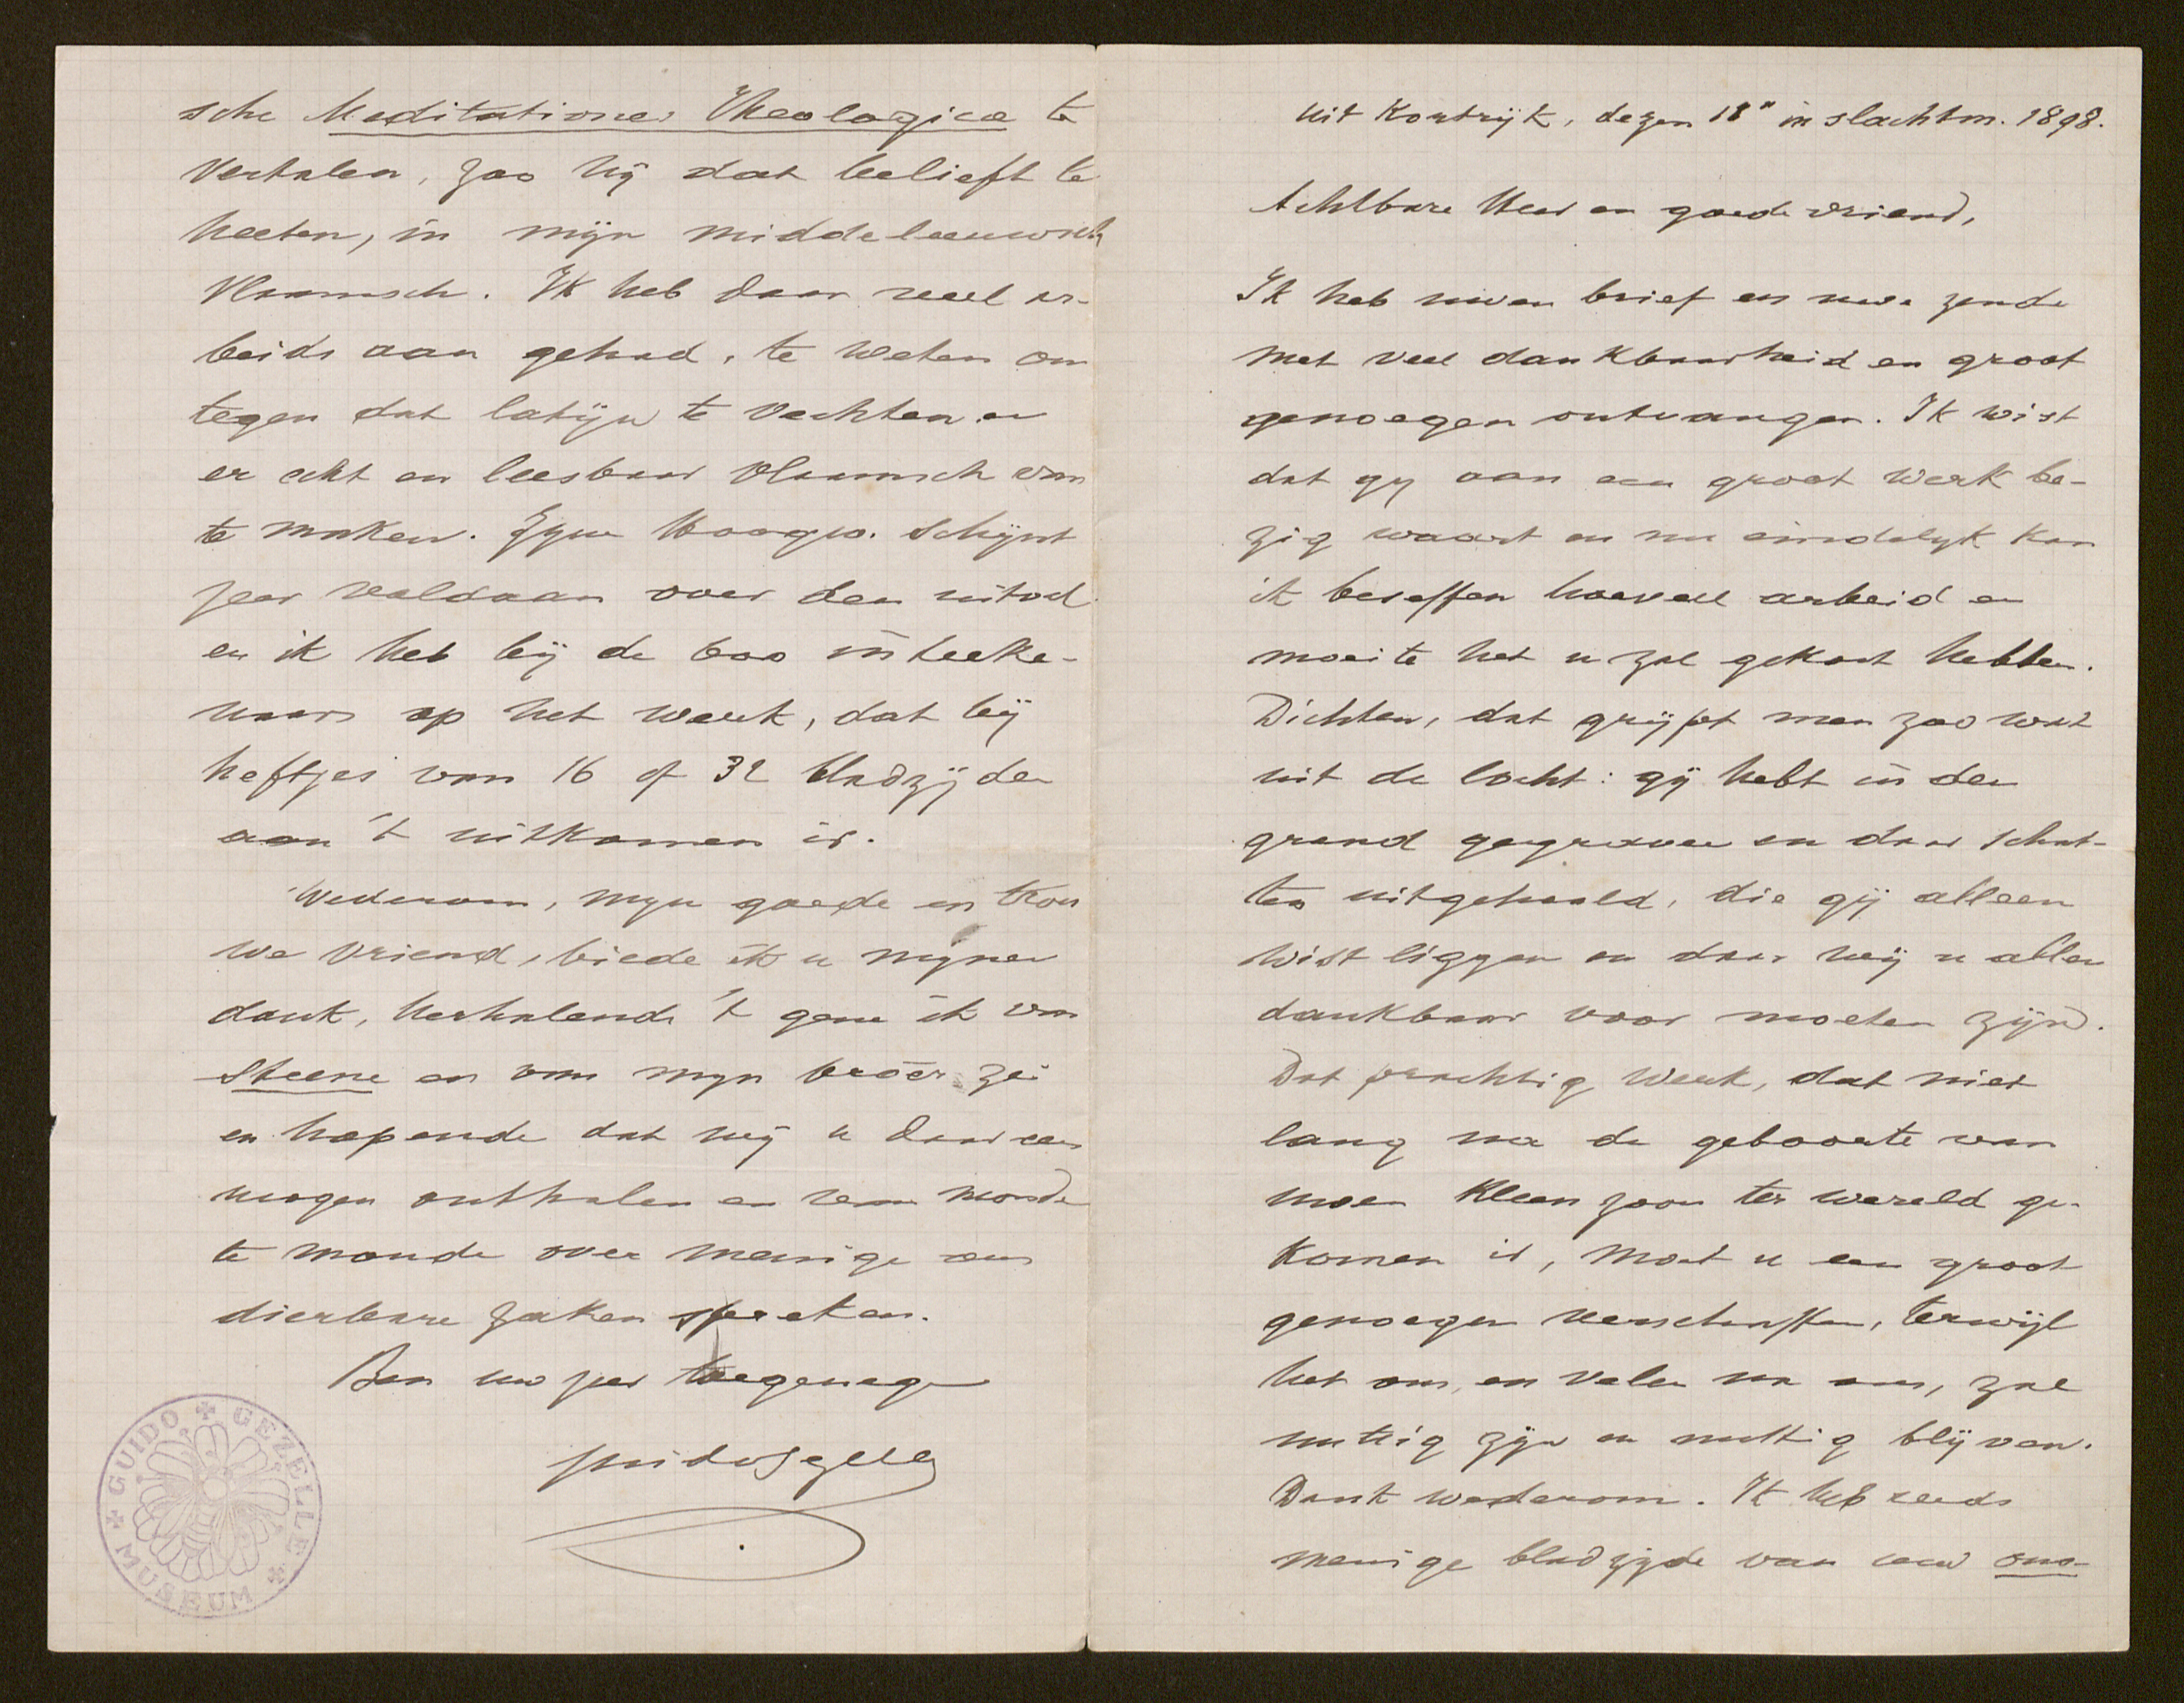 uit Kortrijk, dezen 18n in slachtm. 1898.
Achtbare Heer en goede vriend,
Ik heb uwen brief en uwe zende
met veel dankbaarheid en groot
genoegen ontvangen. Ik wist
dat gy aan een groot werk be-
zig waart en nu eindelyk kan
ik beseffen hoeveel arbeid en
moeite het u zal gekost hebben.
Dichten, dat grijpt men zoo wat
uit de locht: gij hebt in den
grond gegraven en daar schat-
ten uitgehaald, die gij alleen
wist liggen en daar wij u allen
dankbaar voor moeten zijn.
Dat prachtig werk, dat niet
lang na de geboorte van
uwen kleen zoon ter wereld ge-
komen is, moet u een groot
genoegen verschaffen, terwijl
het ons, en velen na ons, zal
nuttig zijn en nuttig blijven.
Dank wederom. Ik heb reeds
menige bladzijde van uw ono-
sche Meditationes Theologicæ te
vertalen, zoo hij dat belieft te
heeten, in mijn middeleeuwsch
Vlaamsch. Ik heb daar veel ar-
beids aan gehad, te weten om
tegen dat latijn te vechten en
er echt en leesbaar vlaamsch van
te maken. Zyne Hoogw. schijnt
zeer voldaan over den uitval
en ik heb bij de 600 inteeke-
naars op het werk, dat bij
heftjes van 16 of 32 bladzijden
aan 't uitkomen is.
Wederom, myn goede en trou
we vriend, biede ik u mynen
dank, herhalende 't gene ik van
Steene en van myn broêr zei
en hopende dat wij u daar eens
mogen onthalen en van monde
te monde over menige ons
dierbare zaken spreken.
Ben uw zeer toegenegen
Guido Gezelle
GUIDO GEZELLE MUSEUM